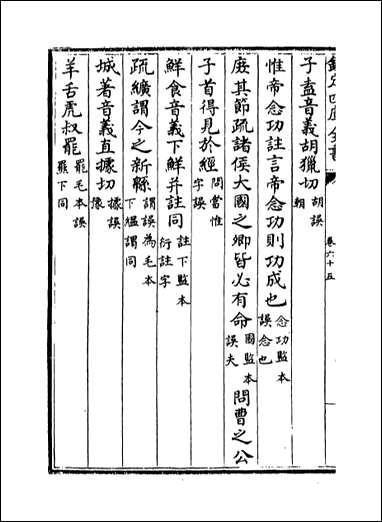 欽定四庫全書
卷六十五
子盍音義胡獵切胡誤朝
惟帝念功註言帝念功則功成也念功監本誤念也
疾其節疏諸侯大國之卿皆必有命國監本誤夫 問曹之公
子首得見於經問當惟字誤
鮮食音義下鮮并註同註下監本衍註字
疏纊謂今之新緜謂誤為毛本下緼謂同
城著音義直據切據誤㨿
羊舌虎叔罷罷毛本誤羆下同